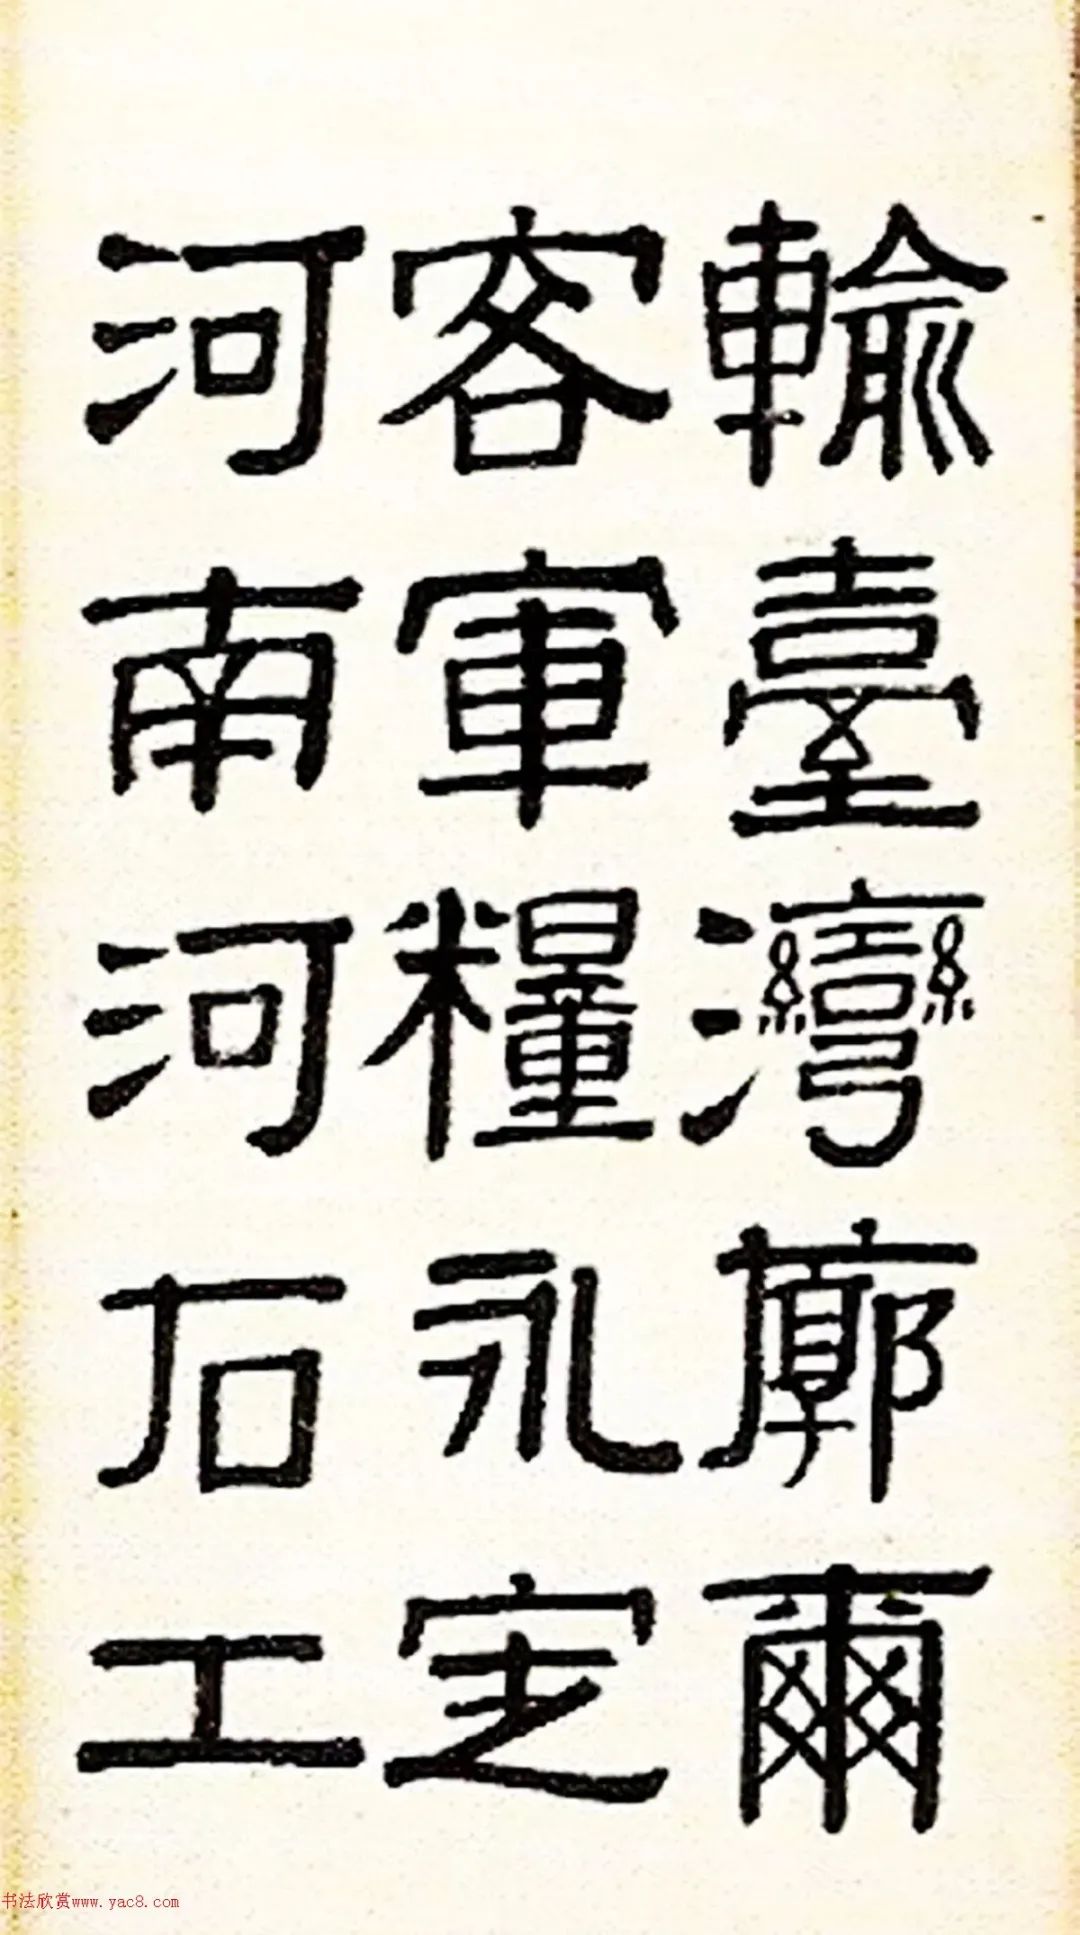 輸臺灣廓爾
容軍糧永定
河南河石工
书法欣赏www.yac8.com